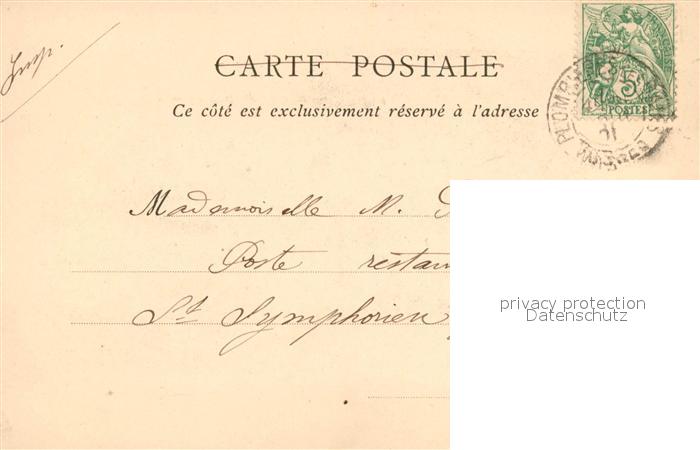 Imp.
CARTE POSTALE
Ce côté est exclusivement réservé à l'adresse
5
POSTES
PLOMBI
VOSGES
Mademoiselle M.
Poste restan
St Symphorien
privacy protection
Datenschutz